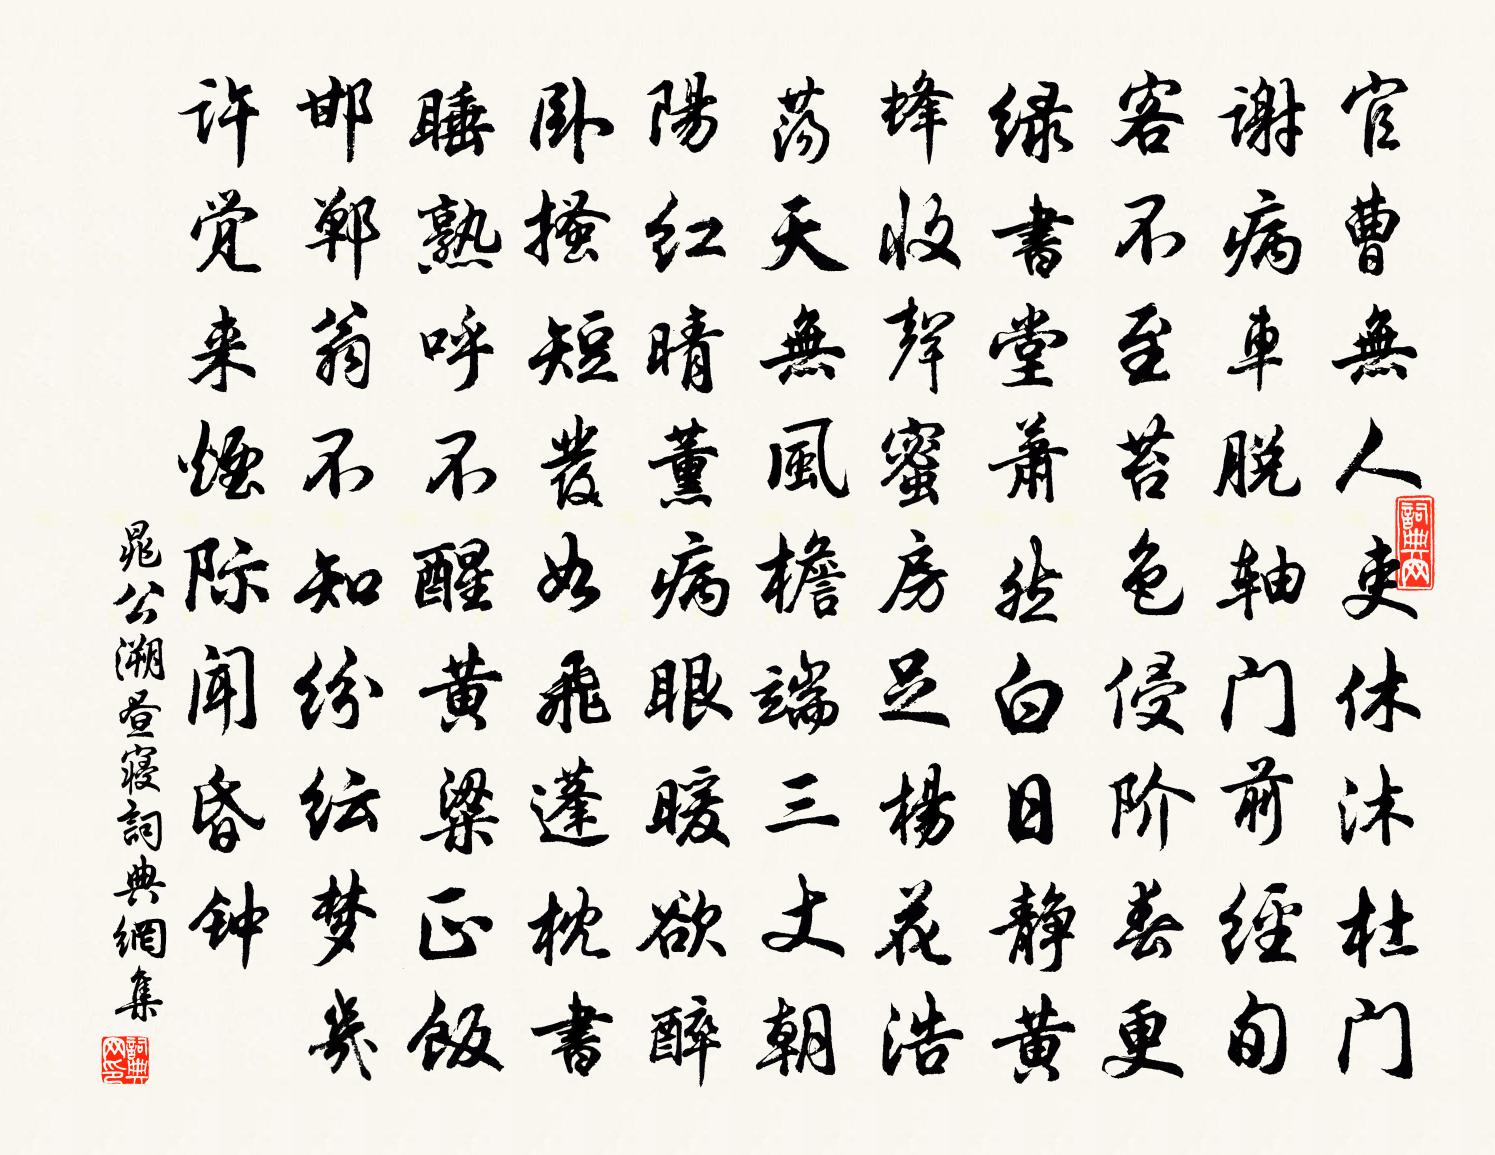 官曹無人吏休沐杜门
谢病車脱轴门前經旬
客不至苔色侵阶春更
绿書堂萧然白日静黄
蜂收聲蜜房足楊花浩
荡天無風檐端三丈朝
陽红晴薰病眼暖欲醉
卧搔短发如飛蓬枕書
睡熟呼不醒黄粱正飯
邯郸翁不知纷纭梦幾
许觉来煙际闻昏钟
晁公溯昼寝詞典網集
詞典网
詞典网印